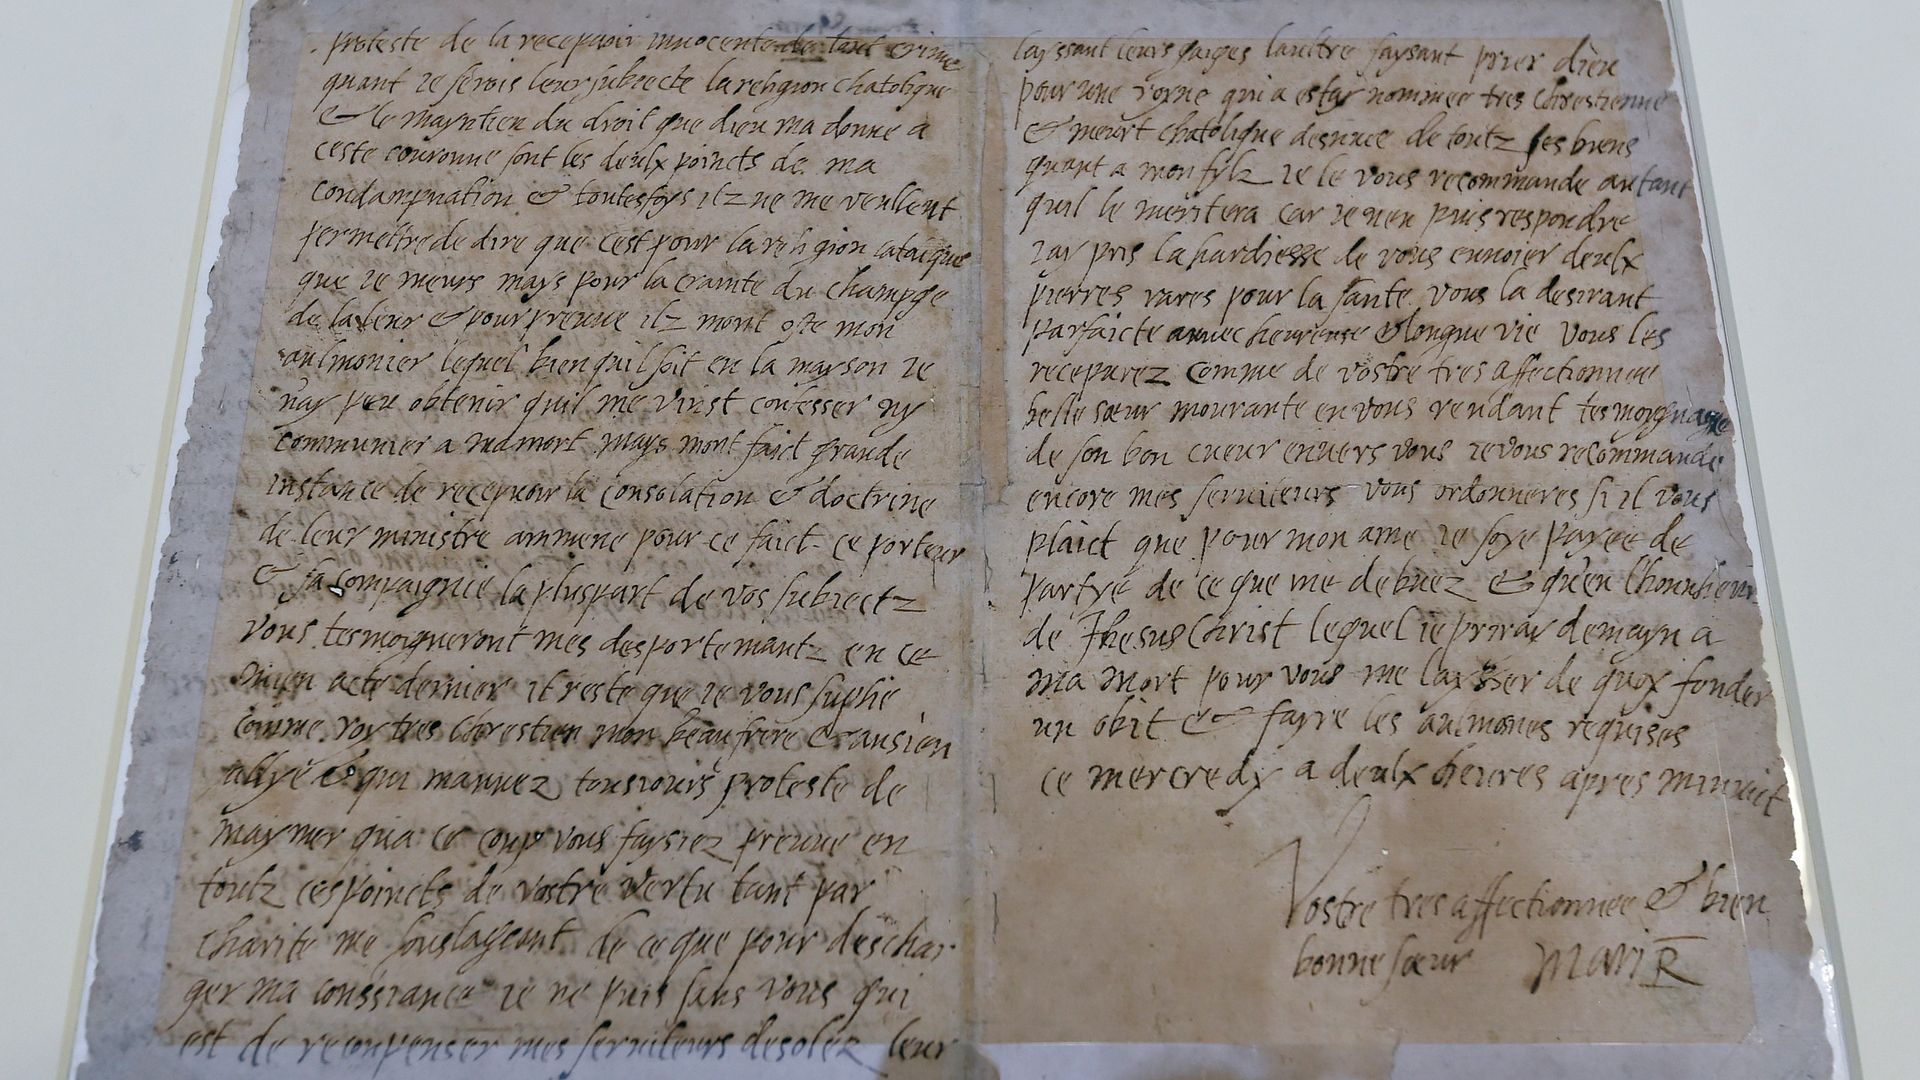 proteste de la recepvoir innocente de tout crime
quant je serois leur subiecte la religion chatolique
& le mayntien du droit que dieu ma donne a
ceste couronne sont les deulx poincts de ma
condampnation & toutesfoys ilz ne me veullent
permettre de dire que cest pour la religion catolique
que ie meurs mays pour la crainte du champge
de la leur & pour preuue ilz mont oste mon
aulmonier lequel bien quil soit en la mayson ie
nay peu obtenir quil me vinst confesser ny
communier a ma mort mays mont faict grande
instance de recepvoir la consolation & doctrine
de leur ministre ammene pour ce faict ce porteur
& sa compaignie la pluspart de vos subiectz
vous tesmoigneront mes desportemantz en ce
mien acte dernier il reste que ie vous suplie
comme roy tres chrestien mon beau frere & ansien
allye & qui mauuez tousiours proteste de
maymer qua ce coup vous faysiez preuue en
toutz ces poincts de vostre vertu tant par
charite me soulageant de ce que pour deschar
ger ma conssiance ie ne puis sans vous qui
est de recompenser mes seruiteurs desolez leur
layssant leurs gaiges laultre faysant prier dieu
pour une royne qui a estay nommee tres chrestienne
& meurt chatolique desnuee de toutz ses biens
quant a mon fylz ie le vous recommande autant
quil le meritera car ie nen puis respondre
iay pris la hardiesse de vous enuoier deulx
pierres rares pour la sante vous la desirant
parfaicte auuec heureuse & longue vie vous les
recepvrez comme de vostre tres affectionnee
belle sœur mourante en vous rendant tesmoygnage
de son bon cueur enuers vous ie vous recommande
encore mes seruiteurs vous ordonneres si il vous
plaict que pour mon ame ie soye payee de
partye de ce que me debuez & quen lhonnheur
de Jhesus Christ lequel ie priray demayn a
ma mort pour vous me laysser de quoy fonder
un obit & fayre les aulmones requises
ce mercredy a deulx heures apres minuict
Vostre tres affectionnee & bien
bonne sœur Mari R